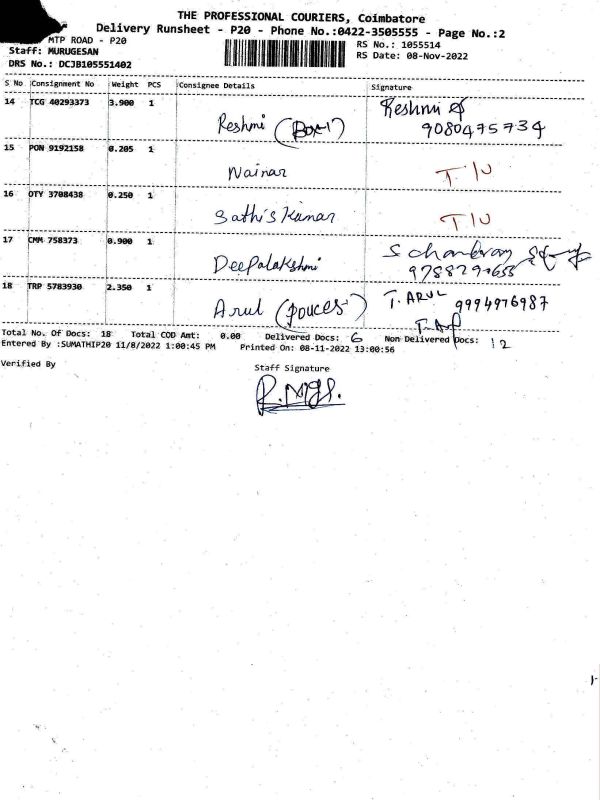 THE PROFESSIONAL COURIERS, Coimbatore
Delivery Runsheet - P20 - Phone No.:0422-3505555 - Page No.:2
MTP ROAD - P20
Staff: MURUGESAN
DRS No.: DCJB105551402
RS No.: 1055514
RS Date: 08-Nov-2022
S No Consignment No Weight PCS Consignee Details Signature
14 TCG 40293373 3.900 1 Reshmi (Box-1) Reshmi
9080475734
15 PON 9192158 0.205 1 Nainar T.IU
16 OTY 3708438 0.250 1 Sathis Kumar TIU
17 CMM 758373 0.900 1 Deepalakshmi
18 TRP 5783930 2.350 1 Arul (pouces) T. ARUL 9994976987
T. Arul
Total No. Of Docs: 18 Total COD Amt: 0.00 Delivered Docs: 6 Non Delivered Docs: 12
Entered By :SUMATHIP20 11/8/2022 1:00:45 PM Printed On: 08-11-2022 13:00:56
Verified By Staff Signature